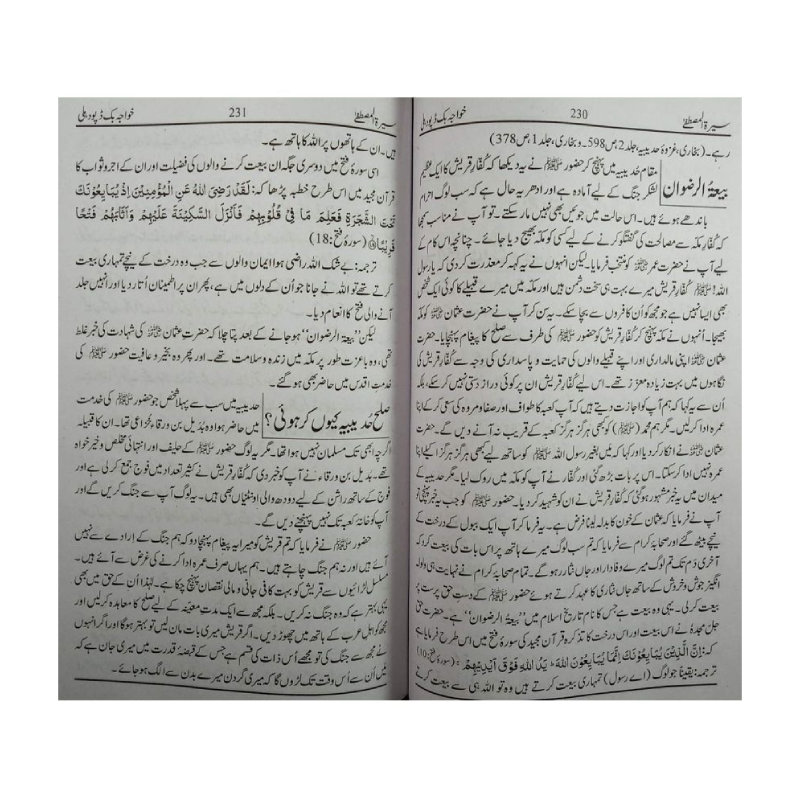 سیرۃ المصطفیٰ 230 خواجہ بک ڈپو دہلی
رہے۔ (بخاری، غزوۂ حدیبیہ، جلد 2، ص 598۔ و بخاری، جلد 1، ص 378)
بیعۃ الرضوان
مقام حدیبیہ میں پہنچ کر حضور ﷺ نے یہ دیکھا کہ کفار قریش کا ایک عظیم
لشکر جنگ کے لیے آمادہ ہے اور ادھر یہ حال ہے کہ سب لوگ احرام
باندھے ہوئے ہیں۔ اس حالت میں جوئیں بھی نہیں مار سکتے۔ تو آپ نے مناسب سمجھا
کہ کفار مکہ سے مصالحت کی گفتگو کرنے کے لیے کسی کو مکہ بھیج دیا جائے۔ چنانچہ اس کام کے
لیے آپ نے حضرت عمر ؓ کو منتخب فرمایا۔ لیکن انہوں نے یہ کہہ کر معذرت کر دی کہ یا رسول
اللہ! کفار قریش میرے بہت ہی سخت دشمن ہیں اور مکہ میں میرے قبیلے کا کوئی ایک شخص
بھی ایسا نہیں ہے جو مجھ کو اُن کافروں سے بچا سکے۔ یہ سن کر آپ نے حضرت عثمان ؓ کو مکہ
بھیجا۔ اُنہوں نے مکہ پہنچ کر کفار قریش کو حضور ﷺ کی طرف سے صلح کا پیغام پہنچایا۔ حضرت
عثمان ؓ اپنی مالداری اور اپنے قبیلے والوں کی حمایت و پاسداری کی وجہ سے کفار قریش کی
نگاہوں میں بہت زیادہ معزز تھے۔ اس لیے کفار قریش ان پر کوئی دراز دستی نہیں کر سکے، بلکہ
اُن سے یہ کہا کہ ہم آپ کو اجازت دیتے ہیں کہ آپ کعبہ کا طواف اور صفا و مروہ کی سعی کر کے اپنا
عمرہ ادا کر لیں۔ مگر ہم محمد (ﷺ) کو کبھی ہرگز ہرگز کعبہ کے قریب نہ آنے دیں گے۔ حضرت
عثمان ؓ نے انکار کر دیا اور کہا کہ میں بغیر رسول اللہ ﷺ کو ساتھ لیے کبھی ہرگز ہرگز اکیلے اپنا
عمرہ نہیں ادا کر سکتا۔ اس پر بات بڑھ گئی اور کفار نے آپ کو مکہ میں روک لیا۔ مگر حدیبیہ کے
میدان میں یہ خبر مشہور ہو گئی کہ کفار قریش نے ان کو شہید کر دیا۔ حضور ﷺ کو جب یہ خبر پہنچی تو
آپ نے فرمایا کہ عثمان کے خون کا بدلہ لینا فرض ہے۔ یہ فرما کر آپ ایک ببول کے درخت کے
نیچے بیٹھ گئے اور صحابہ کرام سے فرمایا کہ تم سب لوگ میرے ہاتھ پر اس بات کی بیعت کرو کہ
آخری دم تک تم لوگ میرے وفادار اور جاں نثار رہو گے۔ تمام صحابہ کرام نے نہایت ہی ولولہ
انگیز جوش و خروش کے ساتھ جاں نثاری کا عہد کرتے ہوئے حضور ﷺ کے دست حق پرست پر
بیعت کر لی۔ یہی وہ بیعت ہے جس کا نام تاریخ اسلام میں ”بیعۃ الرضوان“ ہے۔ حضرت حق
جل مجدہٗ نے اس بیعت اور اس درخت کا تذکرہ قرآن مجید کی سورۂ فتح میں اس طرح فرمایا ہے
کہ: اِنَّ الَّذِیْنَ یُبَایِعُوْنَكَ اِنَّمَا یُبَایِعُوْنَ اللہَ ؕ یَدُ اللہِ فَوْقَ اَیْدِیْهِمْ (سورۂ فتح:10)
ترجمہ: یقیناً جو لوگ (اے رسول) تمہاری بیعت کرتے ہیں وہ تو اللہ ہی سے بیعت کرتے
سیرۃ المصطفیٰ 231 خواجہ بک ڈپو دہلی
ہیں۔ ان کے ہاتھوں پر اللہ کا ہاتھ ہے۔
اسی سورۂ فتح میں دوسری جگہ ان بیعت کرنے والوں کی فضیلت اور ان کے اجر و ثواب کا
قرآن مجید میں اس طرح خطبہ پڑھا کہ: لَقَدْ رَضِیَ اللہُ عَنِ الْمُؤْمِنِیْنَ اِذْ یُبَایِعُوْنَكَ
تَحْتَ الشَّجَرَةِ فَعَلِمَ مَا فِیْ قُلُوْبِهِمْ فَاَنْزَلَ السَّكِیْنَةَ عَلَیْهِمْ وَاَثَابَهُمْ فَتْحًا
قَرِیْبًا (سورۂ فتح:18)
ترجمہ: بے شک اللہ راضی ہوا ایمان والوں سے جب وہ درخت کے نیچے تمہاری بیعت
کرتے تھے تو اللہ نے جانا جو اُن کے دلوں میں ہے، پھر ان پر اطمینان اُتار دیا اور انہیں جلد
آنے والی فتح کا انعام دیا۔
لیکن ”بیعۃ الرضوان“ ہو جانے کے بعد پتا چلا کہ حضرت عثمان ؓ کی شہادت کی خبر غلط
تھی، وہ با عزت طور پر مکہ میں زندہ و سلامت تھے۔ اور پھر وہ بخیر و عافیت حضور ﷺ کی
خدمتِ اقدس میں حاضر بھی ہو گئے۔
صلح حدیبیہ کیوں کر ہوئی؟
حدیبیہ میں سب سے پہلا شخص جو حضور ﷺ کی خدمت
میں حاضر ہوا وہ بُدیل بن ورقاء خُزاعی تھا۔ ان کا قبیلہ
اگرچہ ابھی تک مسلمان نہیں ہوا تھا۔ مگر یہ لوگ حضور ﷺ کے حلیف اور انتہائی مخلص و خیر خواہ
تھے۔ بُدیل بن ورقاء نے آپ کو خبر دی کہ کفار قریش نے کثیر تعداد میں فوج جمع کر لی ہے اور
فوج کے ساتھ راشن کے لیے دودھ والی اونٹنیاں بھی ہیں۔ یہ لوگ آپ سے جنگ کریں گے اور
آپ کو خانہ کعبہ تک نہیں پہنچنے دیں گے۔
حضور ﷺ نے فرمایا کہ تم قریش کو میرا یہ پیغام پہنچا دو کہ ہم جنگ کے ارادے سے نہیں
آئے ہیں اور نہ ہم جنگ چاہتے ہیں۔ ہم یہاں صرف عمرہ ادا کرنے کی غرض سے آئے ہیں۔
مسلسل لڑائیوں سے قریش کو بہت کافی جانی و مالی نقصان پہنچ چکا ہے۔ لہٰذا اُن کے حق میں بھی
یہی بہتر ہے کہ وہ جنگ نہ کریں۔ بلکہ مجھ سے ایک مدت معینہ کے لیے صلح کا معاہدہ کر لیں اور
مجھ کو اہل عرب کے ہاتھ میں چھوڑ دیں۔ اگر قریش میری بات مان لیں تو بہتر ہوگا اور اگر انہوں
نے مجھ سے جنگ کی تو مجھے اُس ذات کی قسم ہے جس کے قبضہ قدرت میں میری جان ہے کہ
میں اُن سے اُس وقت تک لڑوں گا کہ میری گردن میرے بدن سے الگ ہو جائے۔